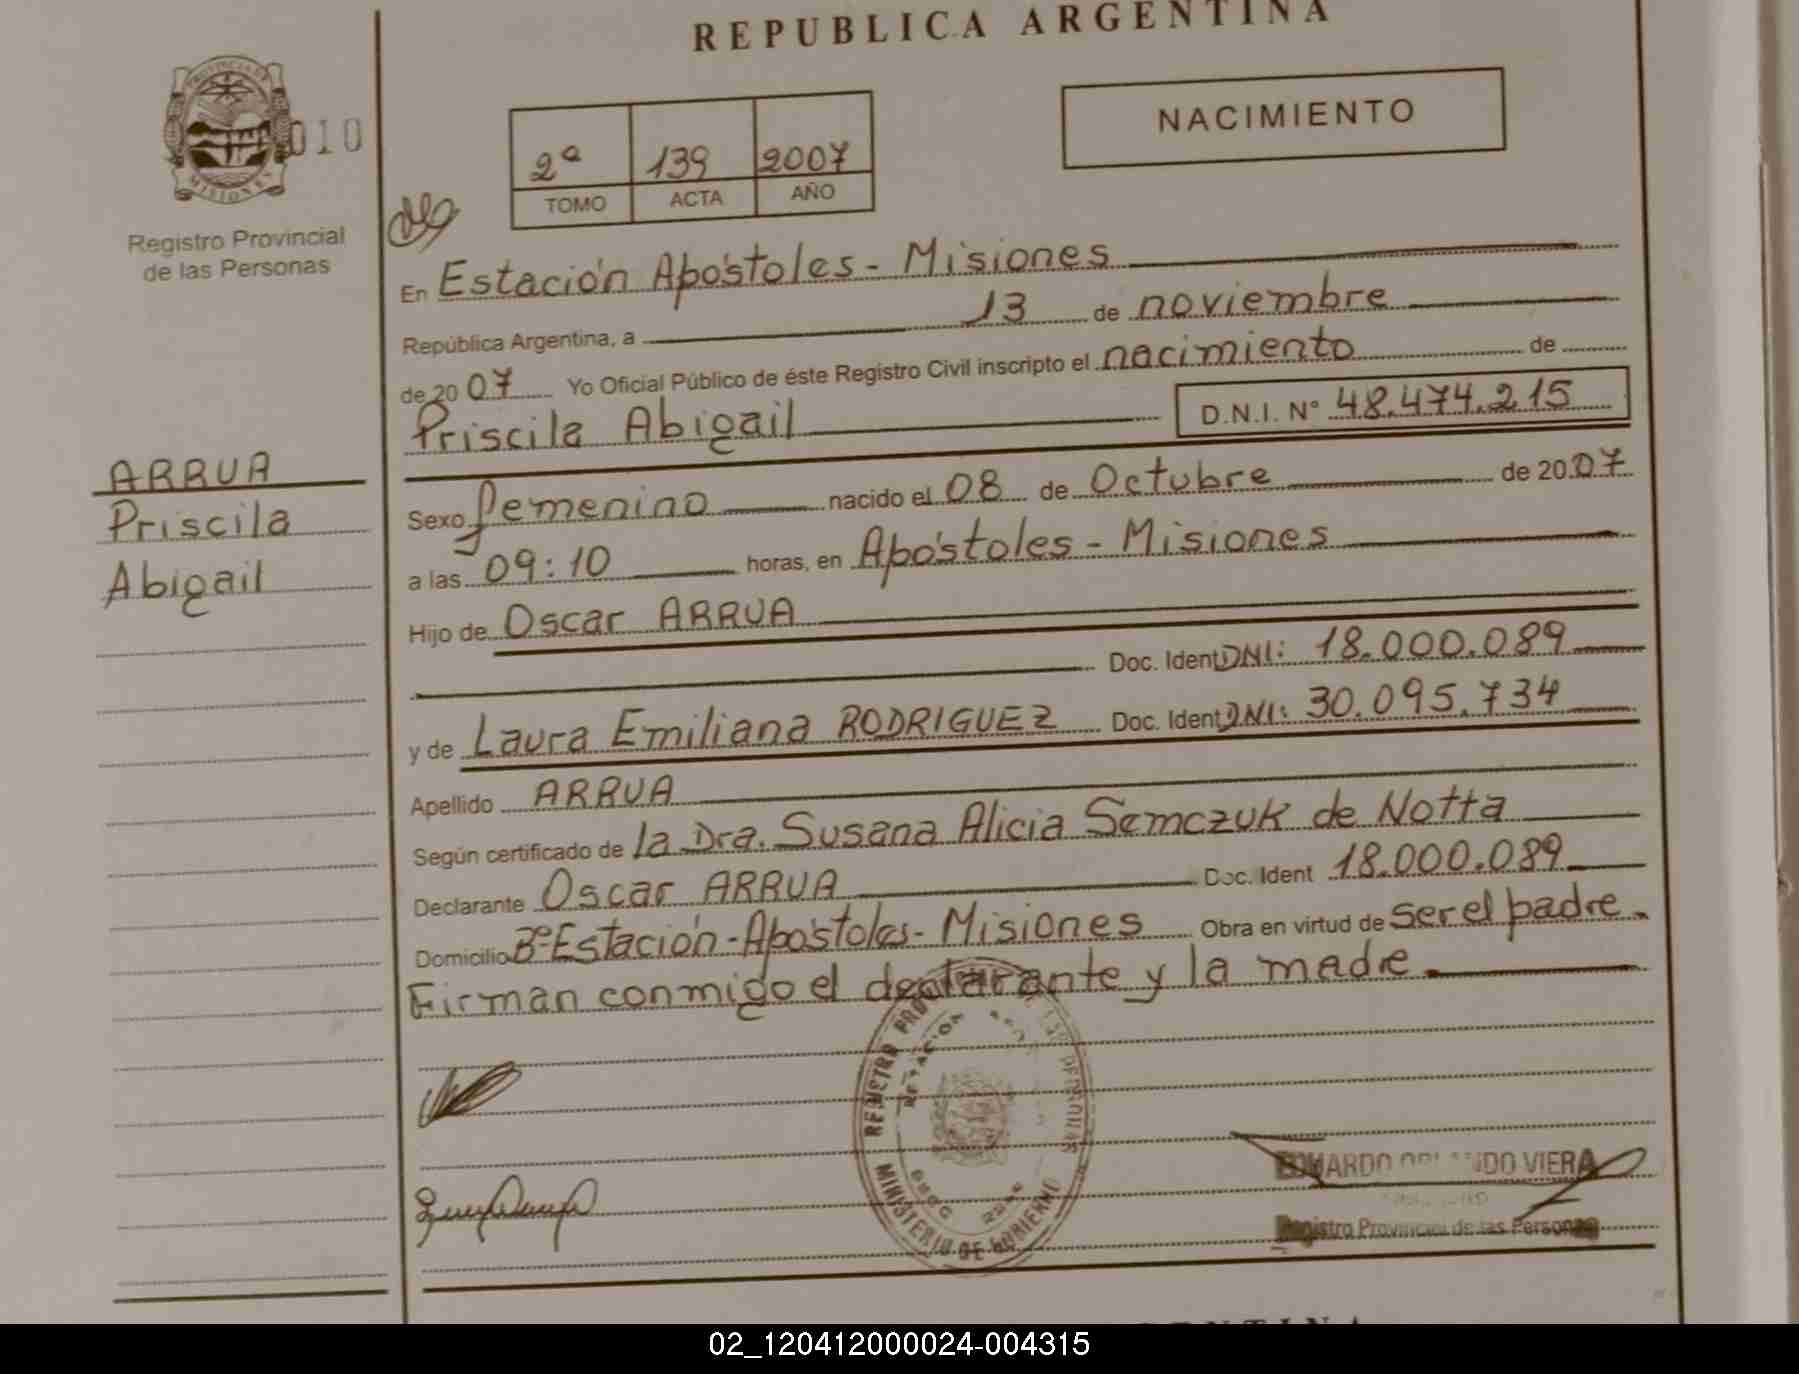 REPUBLICA ARGENTINA
PROVINCIA DE
MISIONES
010
Registro Provincial
de las Personas
NACIMIENTO
2ª 139 2007
TOMO ACTA AÑO
En Estación Apóstoles - Misiones
República Argentina, a 13 de noviembre
de 2007 Yo Oficial Público de éste Registro Civil inscripto el nacimiento de
Priscila Abigail D.N.I. N° 48.474.215
ARRUA
Priscila
Abigail
Sexo femenino nacido el 08 de Octubre de 2007
a las 09:10 horas, en Apóstoles - Misiones
Hijo de Oscar ARRUA
Doc. Ident DNI: 18.000.089
y de Laura Emiliana RODRIGUEZ Doc. Ident DNI: 30.095.734
Apellido ARRUA
Según certificado de la Dra. Susana Alicia Semczuk de Notta
Declarante Oscar ARRUA Doc. Ident 18.000.089
Domicilio Bº Estación - Apóstoles - Misiones Obra en virtud de ser el padre.
Firman conmigo el declarante y la madre
REGISTRO
MINISTERIO DE GOBIERNO
EDUARDO ORLANDO VIERA
Registro Provincial de las Personas
02_120412000024-004315